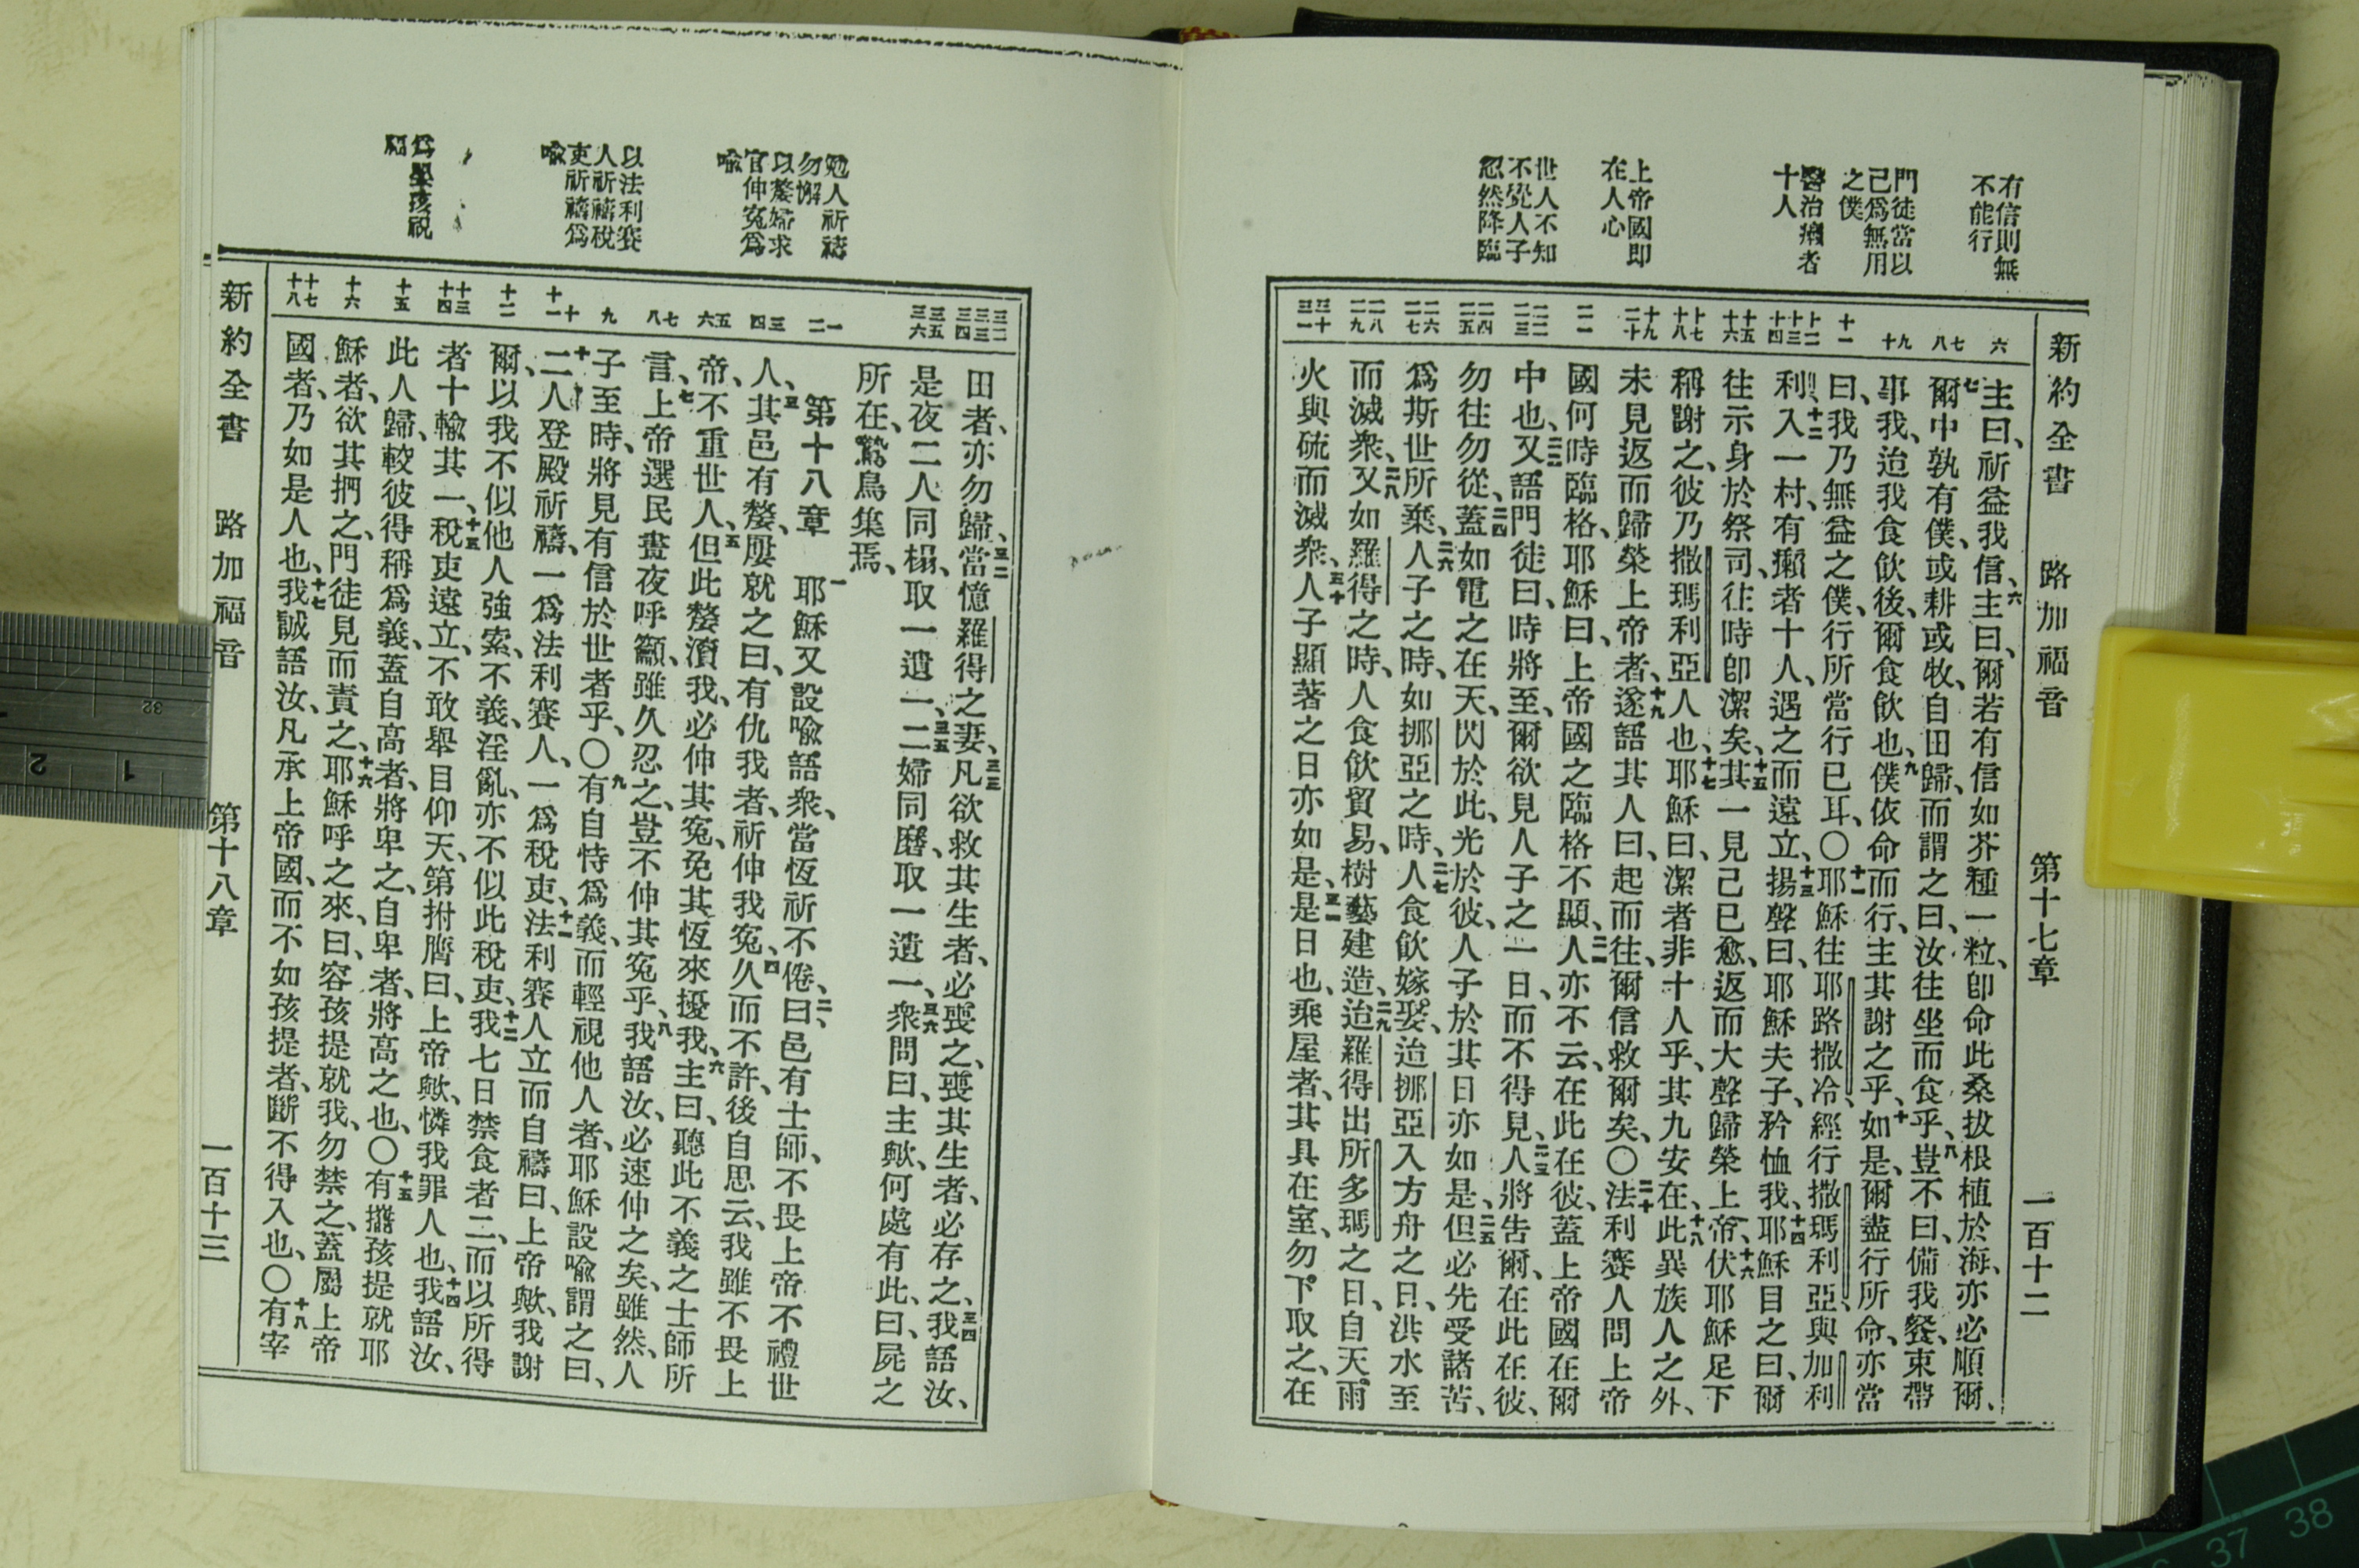 新約全書 路加福音 第十七章 一百十二
有信則無
不能行
門徒當以
己爲無用
之僕
醫治癩者
十人
上帝國即
在人心
世人不知
不覺人子
忽然降臨
六
七
八
九
十
十一
十二
十三
十四
十五
十六
十七
十八
十九
二十
二一
二二
二三
二四
二五
二六
二七
二八
二九
三十
三一
主曰、祈益我信、六主曰、爾若有信如芥種一粒、卽命此桑拔根植於海、亦必順爾、
七爾中孰有僕、或耕或牧、自田歸、而謂之曰、汝往坐而食乎、八豈不曰、備我餐、束帶
事我、迨我食飮後、爾食飮也、九僕依命而行、主其謝之乎、十如是、爾盡行所命、亦當
曰、我乃無益之僕、行所當行已耳、〇十一耶穌往耶路撒冷、經行撒瑪利亞、與加利
利、十二入一村、有癩者十人、遇之而遠立、十三揚聲曰、耶穌夫子、矜恤我、十四耶穌目之曰、爾
往示身於祭司、往時卽潔矣、十五其一見己已愈、返而大聲歸榮上帝、十六伏耶穌足下
稱謝之、彼乃撒瑪利亞人也、十七耶穌曰、潔者非十人乎、其九安在、十八此異族人之外、
未見返而歸榮上帝者、十九遂語其人曰、起而往、爾信救爾矣、〇二十法利賽人問上帝
國何時臨格、耶穌曰、上帝國之臨格不顯、二一人亦不云、在此在彼、蓋上帝國在爾
中也、二二又語門徒曰、時將至、爾欲見人子之一日、而不得見、二三人將吿爾、在此在彼、
勿往勿從、二四蓋如電之在天、閃於此、光於彼、人子於其日亦如是、二五但必先受諸苦、
爲斯世所棄、二六人子之時、如挪亞之時、二七人食飮嫁娶、迨挪亞入方舟之日、洪水至
而滅衆、二八又如羅得之時、人食飮貿易、樹藝建造、二九迨羅得出所多瑪之日、自天雨
火與硫而滅衆、三十人子顯著之日亦如是、三一是日也、乘屋者、其具在室、勿下取之、在
勉人祈禱
勿懈
以嫠婦求
官伸寃爲
喩
以法利賽
人祈禱稅
吏祈禱爲
喩
爲嬰孩祝
福
三二
三三
三四
三五
三六
一
二
三
四
五
六
七
八
九
十
十一
十二
十三
十四
十五
十六
十七
十八
田者、亦勿歸、三二當憶羅得之妻、三三凡欲救其生者、必喪之、喪其生者、必存之、三四我語汝、
是夜二人同榻、取一遺一、三五二婦同磨、取一遺一、三六衆問曰、主歟、何處有此、曰、屍之
所在、鷙鳥集焉、
第十八章 一耶穌又設喩語衆、當恆祈不倦、二曰、邑有士師、不畏上帝不禮世
人、三其邑有嫠、屢就之曰、有仇我者、祈伸我寃、四久而不許、後自思云、我雖不畏上
帝、不重世人、五但此嫠瀆我、必伸其寃、免其恆來擾我、六主曰、聽此不義之士師所
言、七上帝選民晝夜呼籲、雖久忍之、豈不伸其寃乎、八我語汝、必速伸之矣、雖然、人
子至時、將見有信於世者乎、〇九有自恃爲義、而輕視他人者、耶穌設喩謂之曰、
十二人登殿祈禱、一爲法利賽人、一爲稅吏、十一法利賽人立而自禱曰、上帝歟、我謝
爾、以我不似他人強索、不義、淫亂、亦不似此稅吏、十二我七日禁食者二、而以所得
者十輸其一、十三稅吏遠立、不敢舉目仰天、第拊膺曰、上帝歟、憐我罪人也、十四我語汝、
此人歸、較彼得稱爲義、蓋自高者、將卑之、自卑者、將高之也、〇十五有攜孩提就耶
穌者、欲其捫之、門徒見而責之、十六耶穌呼之來、曰、容孩提就我、勿禁之、蓋屬上帝
國者、乃如是人也、十七我誠語汝、凡承上帝國、而不如孩提者、斷不得入也、〇十八有宰
新約全書 路加福音 第十八章 一百十三
32
1
2
37
38